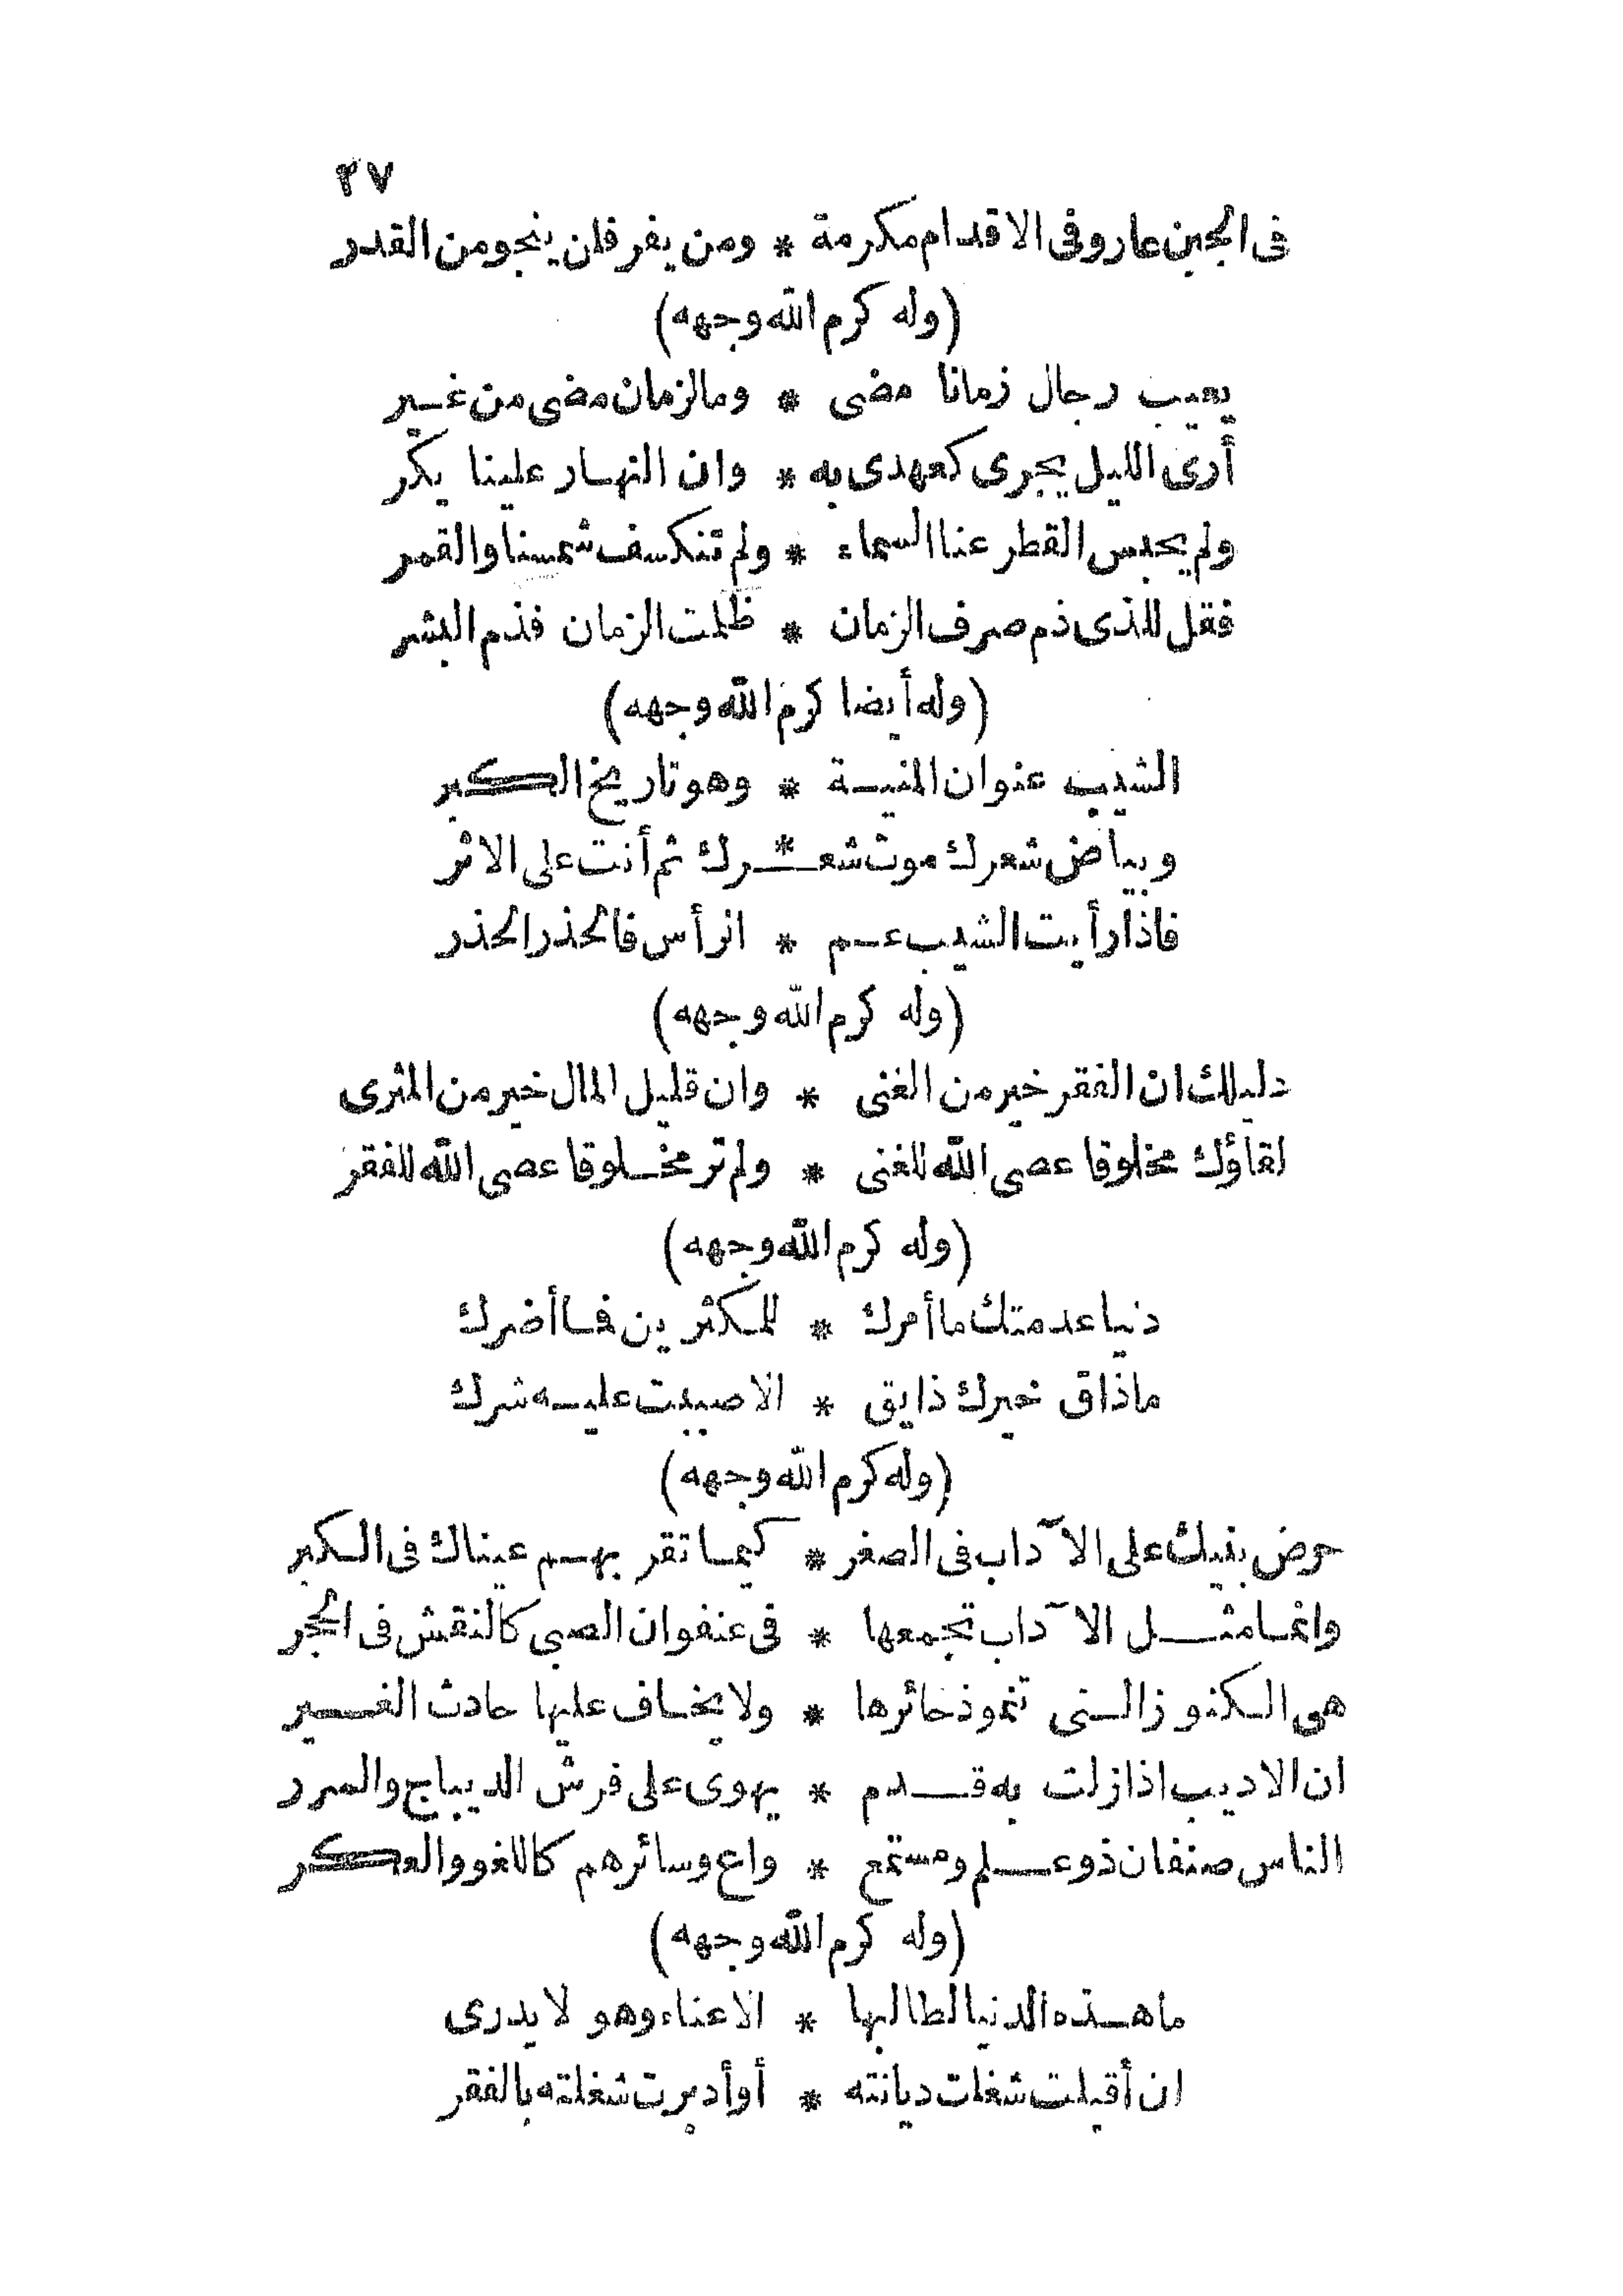 ٣٧
فى الجبن عار وفى الاقدام مكرمة * ومن يفر فلن ينجو من القدر
(وله كرم الله وجهه)
يعيب رجال زمانا مضى * وما لزمان مضى من غير
أرى الليل يجرى كعهدى به * وان النهار علينا يكر
ولم يحبس القطر عنا السماء * ولم تنكسف شمسنا والقمر
فقل للذى ذم صرف الزمان * ظلمت الزمان فذم البشر
(وله أيضا كرم الله وجهه)
الشيب عنوان المنية * وهو تاريخ الكبر
وبياض شعرك موت شعـ * ـرك ثم أنت على الاثر
فاذا رأيت الشيب عم * الرأس فالحذر الحذر
(وله كرم الله وجهه)
دليلك ان الفقر خير من الغنى * وان قليل المال خير من المثرى
لقاؤك مخلوقا عصى الله للغنى * ولم تر مخلوقا عصى الله للفقر
(وله كرم الله وجهه)
دنيا عدمتك ما أمرك * للمكثرين فما أضرك
ما ذاق خيرك ذايق * الا صببت عليه شرك
(وله كرم الله وجهه)
حرض بنيك على الآداب فى الصغر * كيما تقر بهم عيناك فى الكبر
وانما مثل الآداب تجمعها * فى عنفوان الصبى كالنقش فى الحجر
هى الكنوز التى تنمو ذخائرها * ولا يخاف عليها حادث الغير
ان الاديب اذا زلت به قدم * يهوى على فرش الديباج والسرر
الناس صنفان ذو علم ومستمع * واع وسائرهم كاللغو والعكر
(وله كرم الله وجهه)
ما هذه الدنيا لطالبها * الا عناء وهو لا يدرى
ان أقبلت شغلت ديانته * أو أدبرت شغلته بالفقر